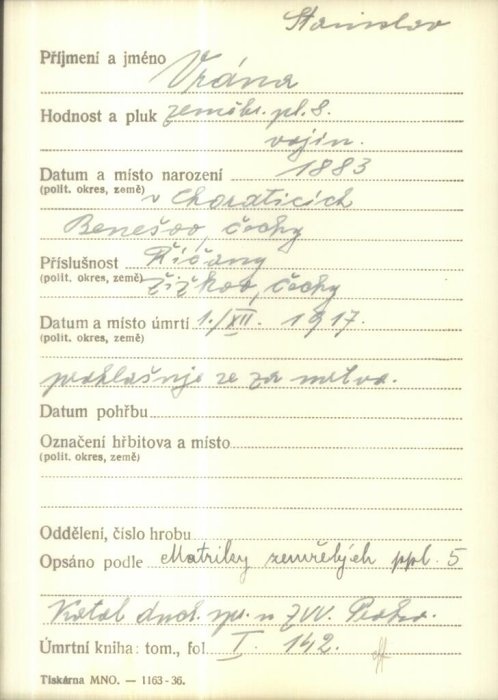 Stanislav
Příjmení a jméno Vrána
Hodnost a pluk zeměbr. pl. 8.
vojín.
Datum a místo narození 1883
(polit. okres, země) v Choraticích
Benešov, čechy
Příslušnost Říčany
(polit. okres, země) Žižkov, čechy
Datum a místo úmrtí 1./XII. 1917.
(polit. okres, země)
prohlašuje se za mrtva.
Datum pohřbu
Označení hřbitova a místo
(polit. okres, země)
Oddělení, číslo hrobu
Opsáno podle Matriky zemřelých ppl. 5
Katol. duch. spr. u ZVV. Praha.
Úmrtní kniha: tom., fol. I. 142.
Tiskárna MNO. — 1163-36.